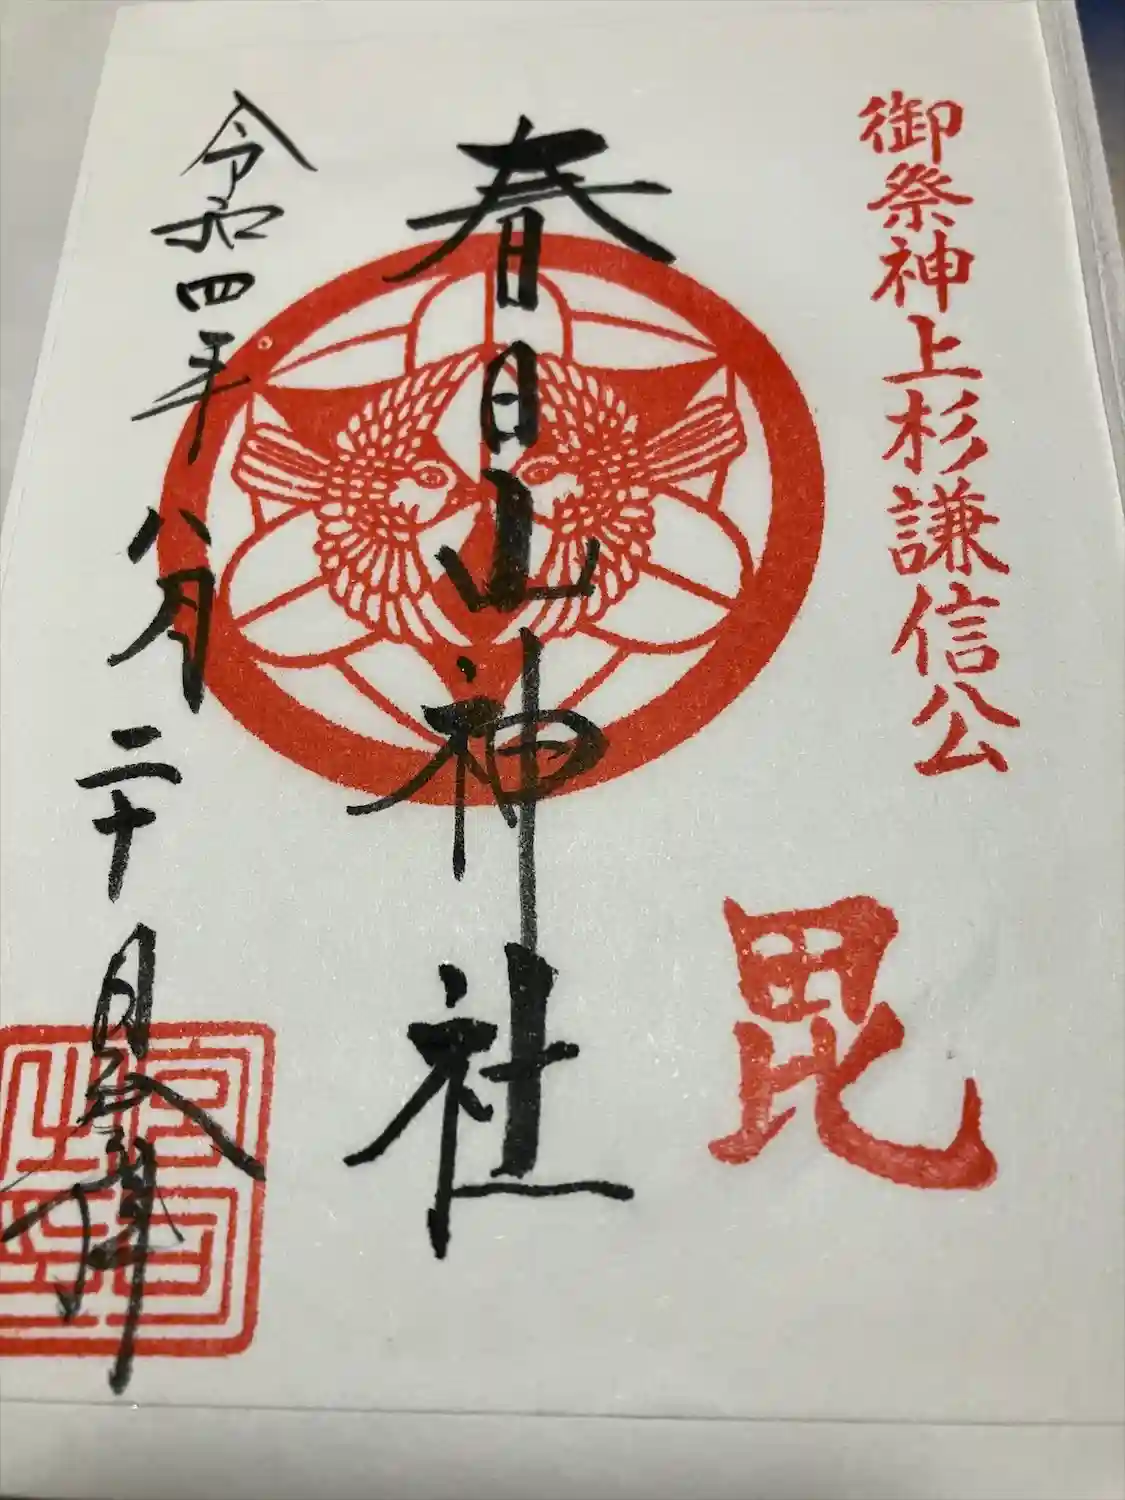 御祭神上杉謙信公
毘
春日山神社
令和四年八月二十日参拝